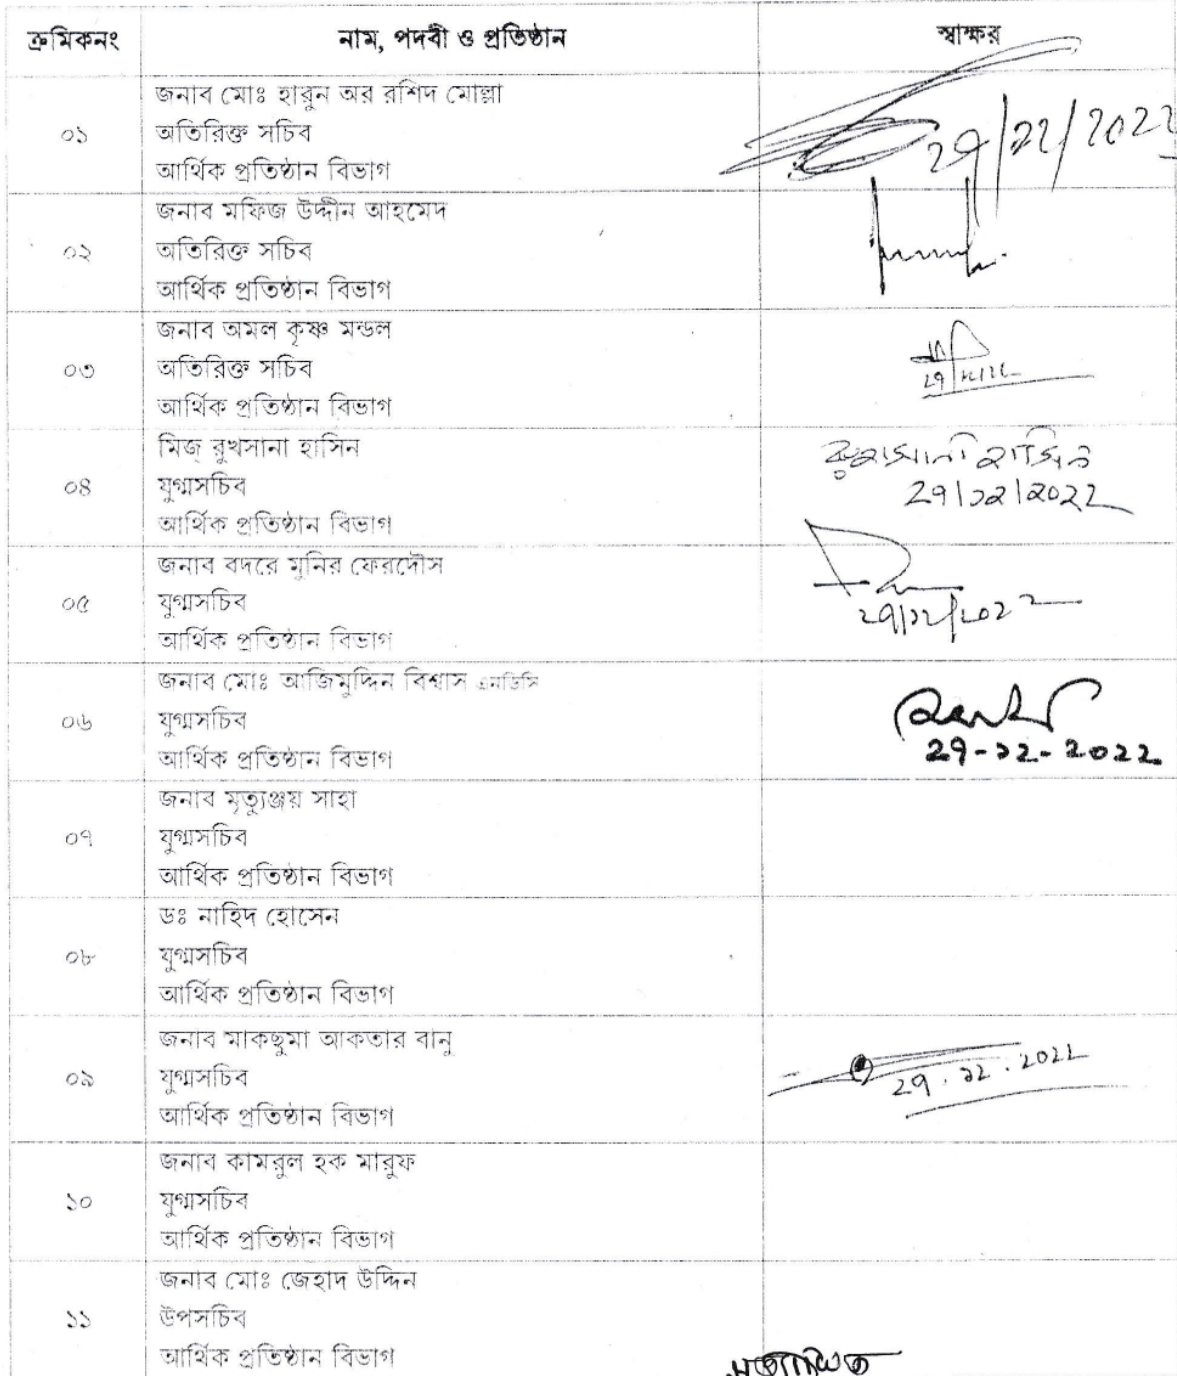 ক্রমিকনং নাম, পদবী ও প্রতিষ্ঠান স্বাক্ষর
জনাব মোঃ হারুন অর রশিদ মোল্লা
০১ অতিরিক্ত সচিব
আর্থিক প্রতিষ্ঠান বিভাগ
29/১2/2022
জনাব মফিজ উদ্দীন আহমেদ
০২ অতিরিক্ত সচিব
আর্থিক প্রতিষ্ঠান বিভাগ
জনাব অমল কৃষ্ণ মন্ডল
০৩ অতিরিক্ত সচিব
আর্থিক প্রতিষ্ঠান বিভাগ
মিজ্ রুখসানা হাসিন
০৪ যুগ্মসচিব
আর্থিক প্রতিষ্ঠান বিভাগ
রুখসানা হাসিন
29/১2/2022
জনাব বদরে মুনির ফেরদৌস
০৫ যুগ্মসচিব
আর্থিক প্রতিষ্ঠান বিভাগ
29/১2/2022
জনাব মোঃ আজিমুদ্দিন বিশ্বাস এনডিসি
০৬ যুগ্মসচিব
আর্থিক প্রতিষ্ঠান বিভাগ
29-১2-2022
জনাব মৃত্যুঞ্জয় সাহা
০৭ যুগ্মসচিব
আর্থিক প্রতিষ্ঠান বিভাগ
ডঃ নাহিদ হোসেন
০৮ যুগ্মসচিব
আর্থিক প্রতিষ্ঠান বিভাগ
জনাব মাকছুমা আকতার বানু
০৯ যুগ্মসচিব
আর্থিক প্রতিষ্ঠান বিভাগ
29.১2.2022
জনাব কামরুল হক মারুফ
১০ যুগ্মসচিব
আর্থিক প্রতিষ্ঠান বিভাগ
জনাব মোঃ জেহাদ উদ্দিন
১১ উপসচিব
আর্থিক প্রতিষ্ঠান বিভাগ